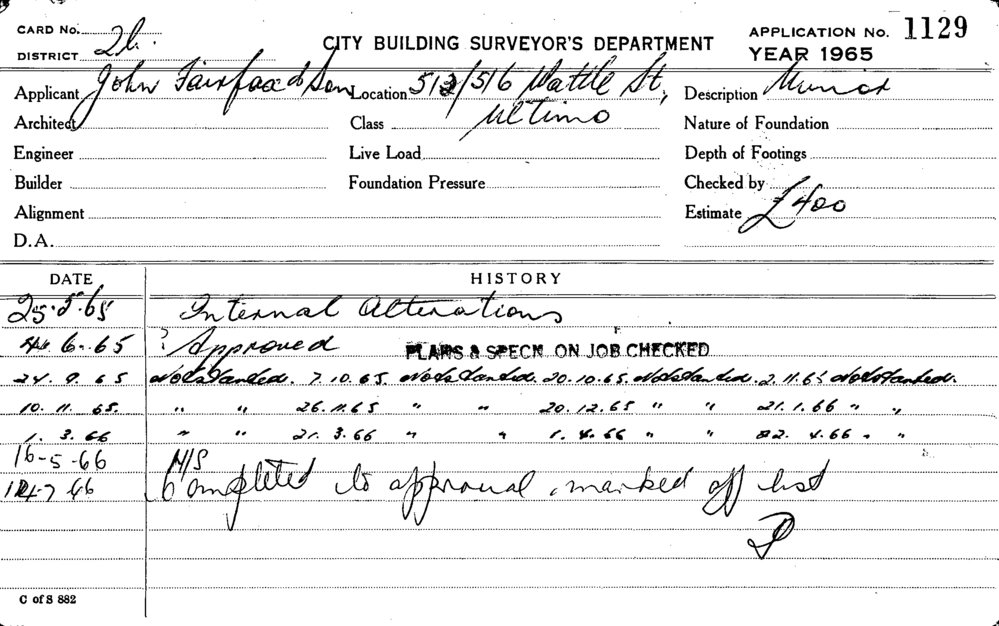 CARD No.
APPLICATION No. 1129
DISTRICT 2b.
CITY BUILDING SURVEYOR'S DEPARTMENT
YEAR 1965
Applicant John Fairfax & Son Location 512/516 Wattle St, Description Minor
Architect Class Ultimo Nature of Foundation
Engineer Live Load Depth of Footings
Builder Foundation Pressure Checked by
Alignment Estimate £400
D.A.
DATE HISTORY
25.5.65 Internal Alterations
6.65 ? Approved PLANS & SPECN. ON JOB CHECKED
24.9.65 Not Started. 7.10.65. Not Started. 20.10.65. Not Started. 2.11.65 Not Started.
10.11.65. " " 26.11.65 " " 20.12.65 " " 21.1.66 " "
1.3.66 " " 21.3.66 " " 1.4.66 " " 22.4.66 " "
16-5-66 N/S
14-7 66 Completed to approval, marked off list
C of S 882